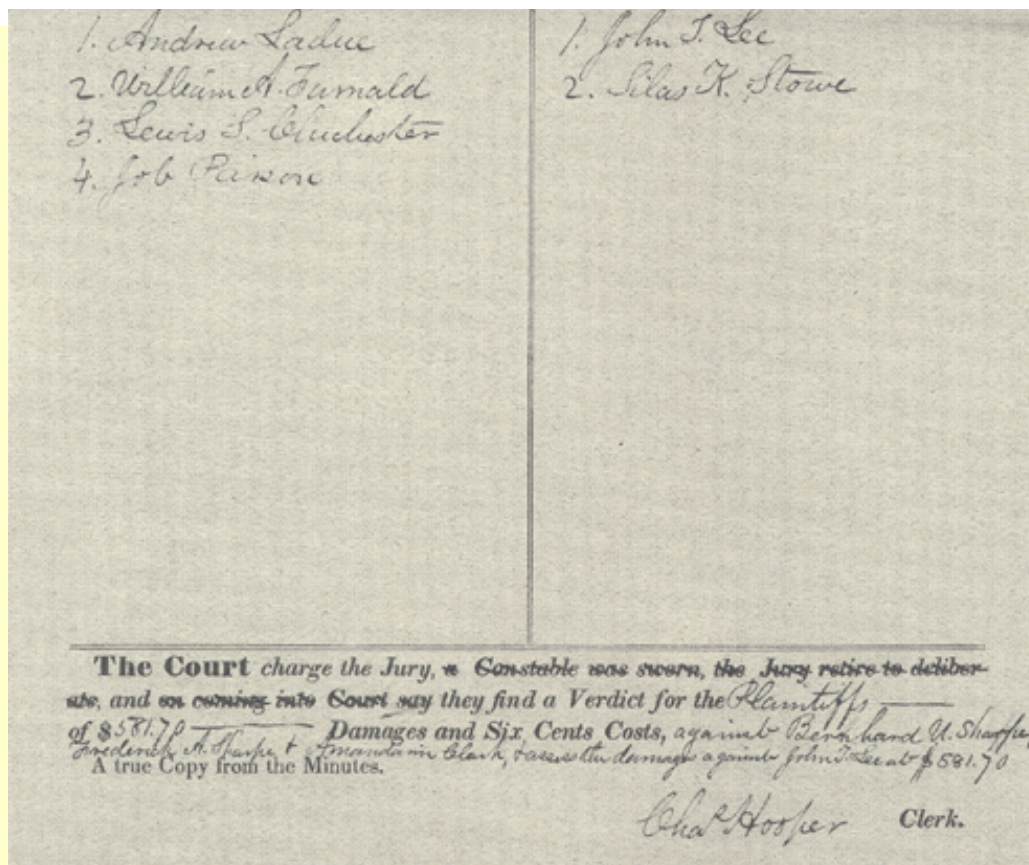 1. Andrew Ladue
2. William A. Furnald
3. Lewis S. Chichester
4. Job
1. John T. Lee
2. Silas K. Stowe
The Court charge the Jury, a Constable was sworn, the Jury retire to deliber-
ate, and on coming into Court say they find a Verdict for the Plaintiffs
of $581.70 Damages and Six Cents Costs, against Bernhard U. Sharpe
Frederick A. Sharpe & Amandarin Clark, & assess the damages against John T. Lee at $581.70
A true Copy from the Minutes.
Chas Hooper Clerk.